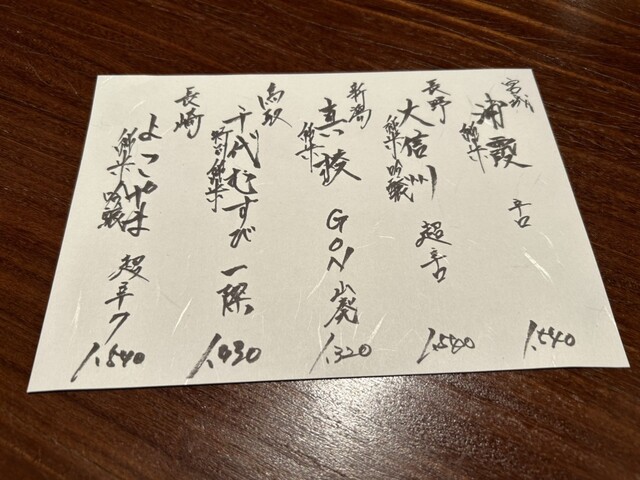 宮城
浦霞
純米
辛口
1,540
長野
大信州
純米吟醸
超辛口
1,540
新潟
真稜
純米
GON 山廃
1,320
鳥取
千代むすび
特別純米
1,430
長崎
よこやま
純米吟醸
超辛7
1,540